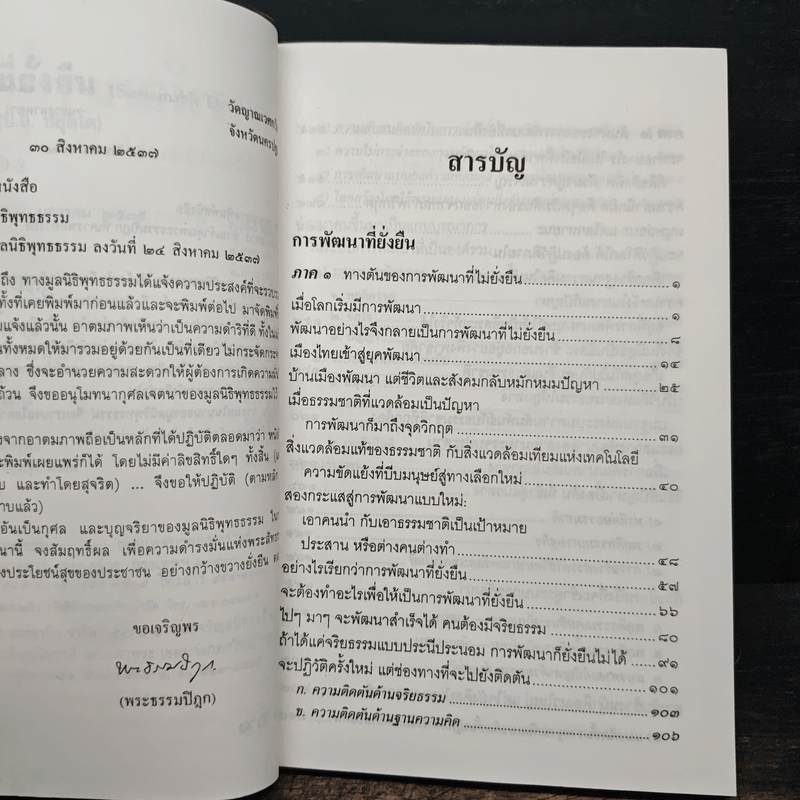 วัดญาณเวศ
จังหวัดนคร
๓๐ สิงหาคม ๒๕๓๗
นังสือ
ธิพุทธธรรม
ลนิธิพุทธธรรม ลงวันที่ ๒๔ สิงหาคม ๒๕๓๗
ถึง ทางมูลนิธิพุทธธรรมได้แจ้งความประสงค์ที่จะรวบ
ทั้งที่เคยพิมพ์มาก่อนแล้วและจะพิมพ์ต่อไป มาจัดพิมพ์
แจ้งแล้วนั้น อาตมภาพเห็นว่าเป็นความดำริที่ดี ทั้งใน
ทั้งหมดให้มารวมอยู่ด้วยกันเป็นที่เดียว ไม่กระจัดกระ
ลาง ซึ่งจะอำนวยความสะดวกให้ผู้ต้องการเกิดความ
ถ้วน จึงขออนุโมทนากุศลเจตนาของมูลนิธิพุทธธรรมไว้
งจากอาตมภาพถือเป็นหลักที่ได้ปฏิบัติตลอดมาว่า
ะพิมพ์เผยแพร่ก็ได้ โดยไม่มีค่าลิขสิทธิ์ใดๆ ทั้งสิ้น
บ และทำโดยสุจริต) ... จึงขอให้ปฏิบัติ (ตามหลัก
าบแล้ว)
อันเป็นกุศล และบุญจริยาของมูลนิธิพุทธธรรม ใน
นานี้ จงสัมฤทธิ์ผล เพื่อความดำรงมั่นแห่งพระสัทธ
งประโยชน์สุขของประชาชน อย่างกว้างขวางยั่งยืน
ขอเจริญพร
(พระธรรมปิฎก)
สารบัญ
การพัฒนาที่ยั่งยืน
ภาค ๑ ทางตันของการพัฒนาที่ไม่ยั่งยืน ๑
เมื่อโลกเริ่มมีการพัฒนา ๑
พัฒนาอย่างไรจึงกลายเป็นการพัฒนาที่ไม่ยั่งยืน ๘
เมืองไทยเข้าสู่ยุคพัฒนา ๑๔
บ้านเมืองพัฒนา แต่ชีวิตและสังคมกลับหมักหมมปัญหา ๒๕
เมื่อธรรมชาติที่แวดล้อมเป็นปัญหา
การพัฒนาก็มาถึงจุดวิกฤต ๓๑
สิ่งแวดล้อมแท้ของธรรมชาติ กับสิ่งแวดล้อมเทียมแห่งเทคโนโลยี
ความขัดแย้งที่บีบมนุษย์สู่ทางเลือกใหม่ ๔๐
สองกระแสสู่การพัฒนาแบบใหม่:
เอาคนนำ กับเอาธรรมชาติเป็นเป้าหมาย
ประสาน หรือต่างคนต่างทำ ๔๘
อย่างไรเรียกว่าการพัฒนาที่ยั่งยืน ๕๗
จะต้องทำอะไรเพื่อให้เป็นการพัฒนาที่ยั่งยืน ๖๖
ไปๆ มาๆ จะพัฒนาสำเร็จได้ คนต้องมีจริยธรรม ๘๐
ถ้าได้แค่จริยธรรมแบบประนีประนอม การพัฒนาก็ยั่งยืนไม่ได้ ๙๑
จะปฏิวัติครั้งใหม่ แต่ช่องทางที่จะไปยังติดตัน ๑๐๑
ก. ความติดตันด้านจริยธรรม ๑๐๓
ข. ความติดตันด้านฐานความคิด ๑๐๖